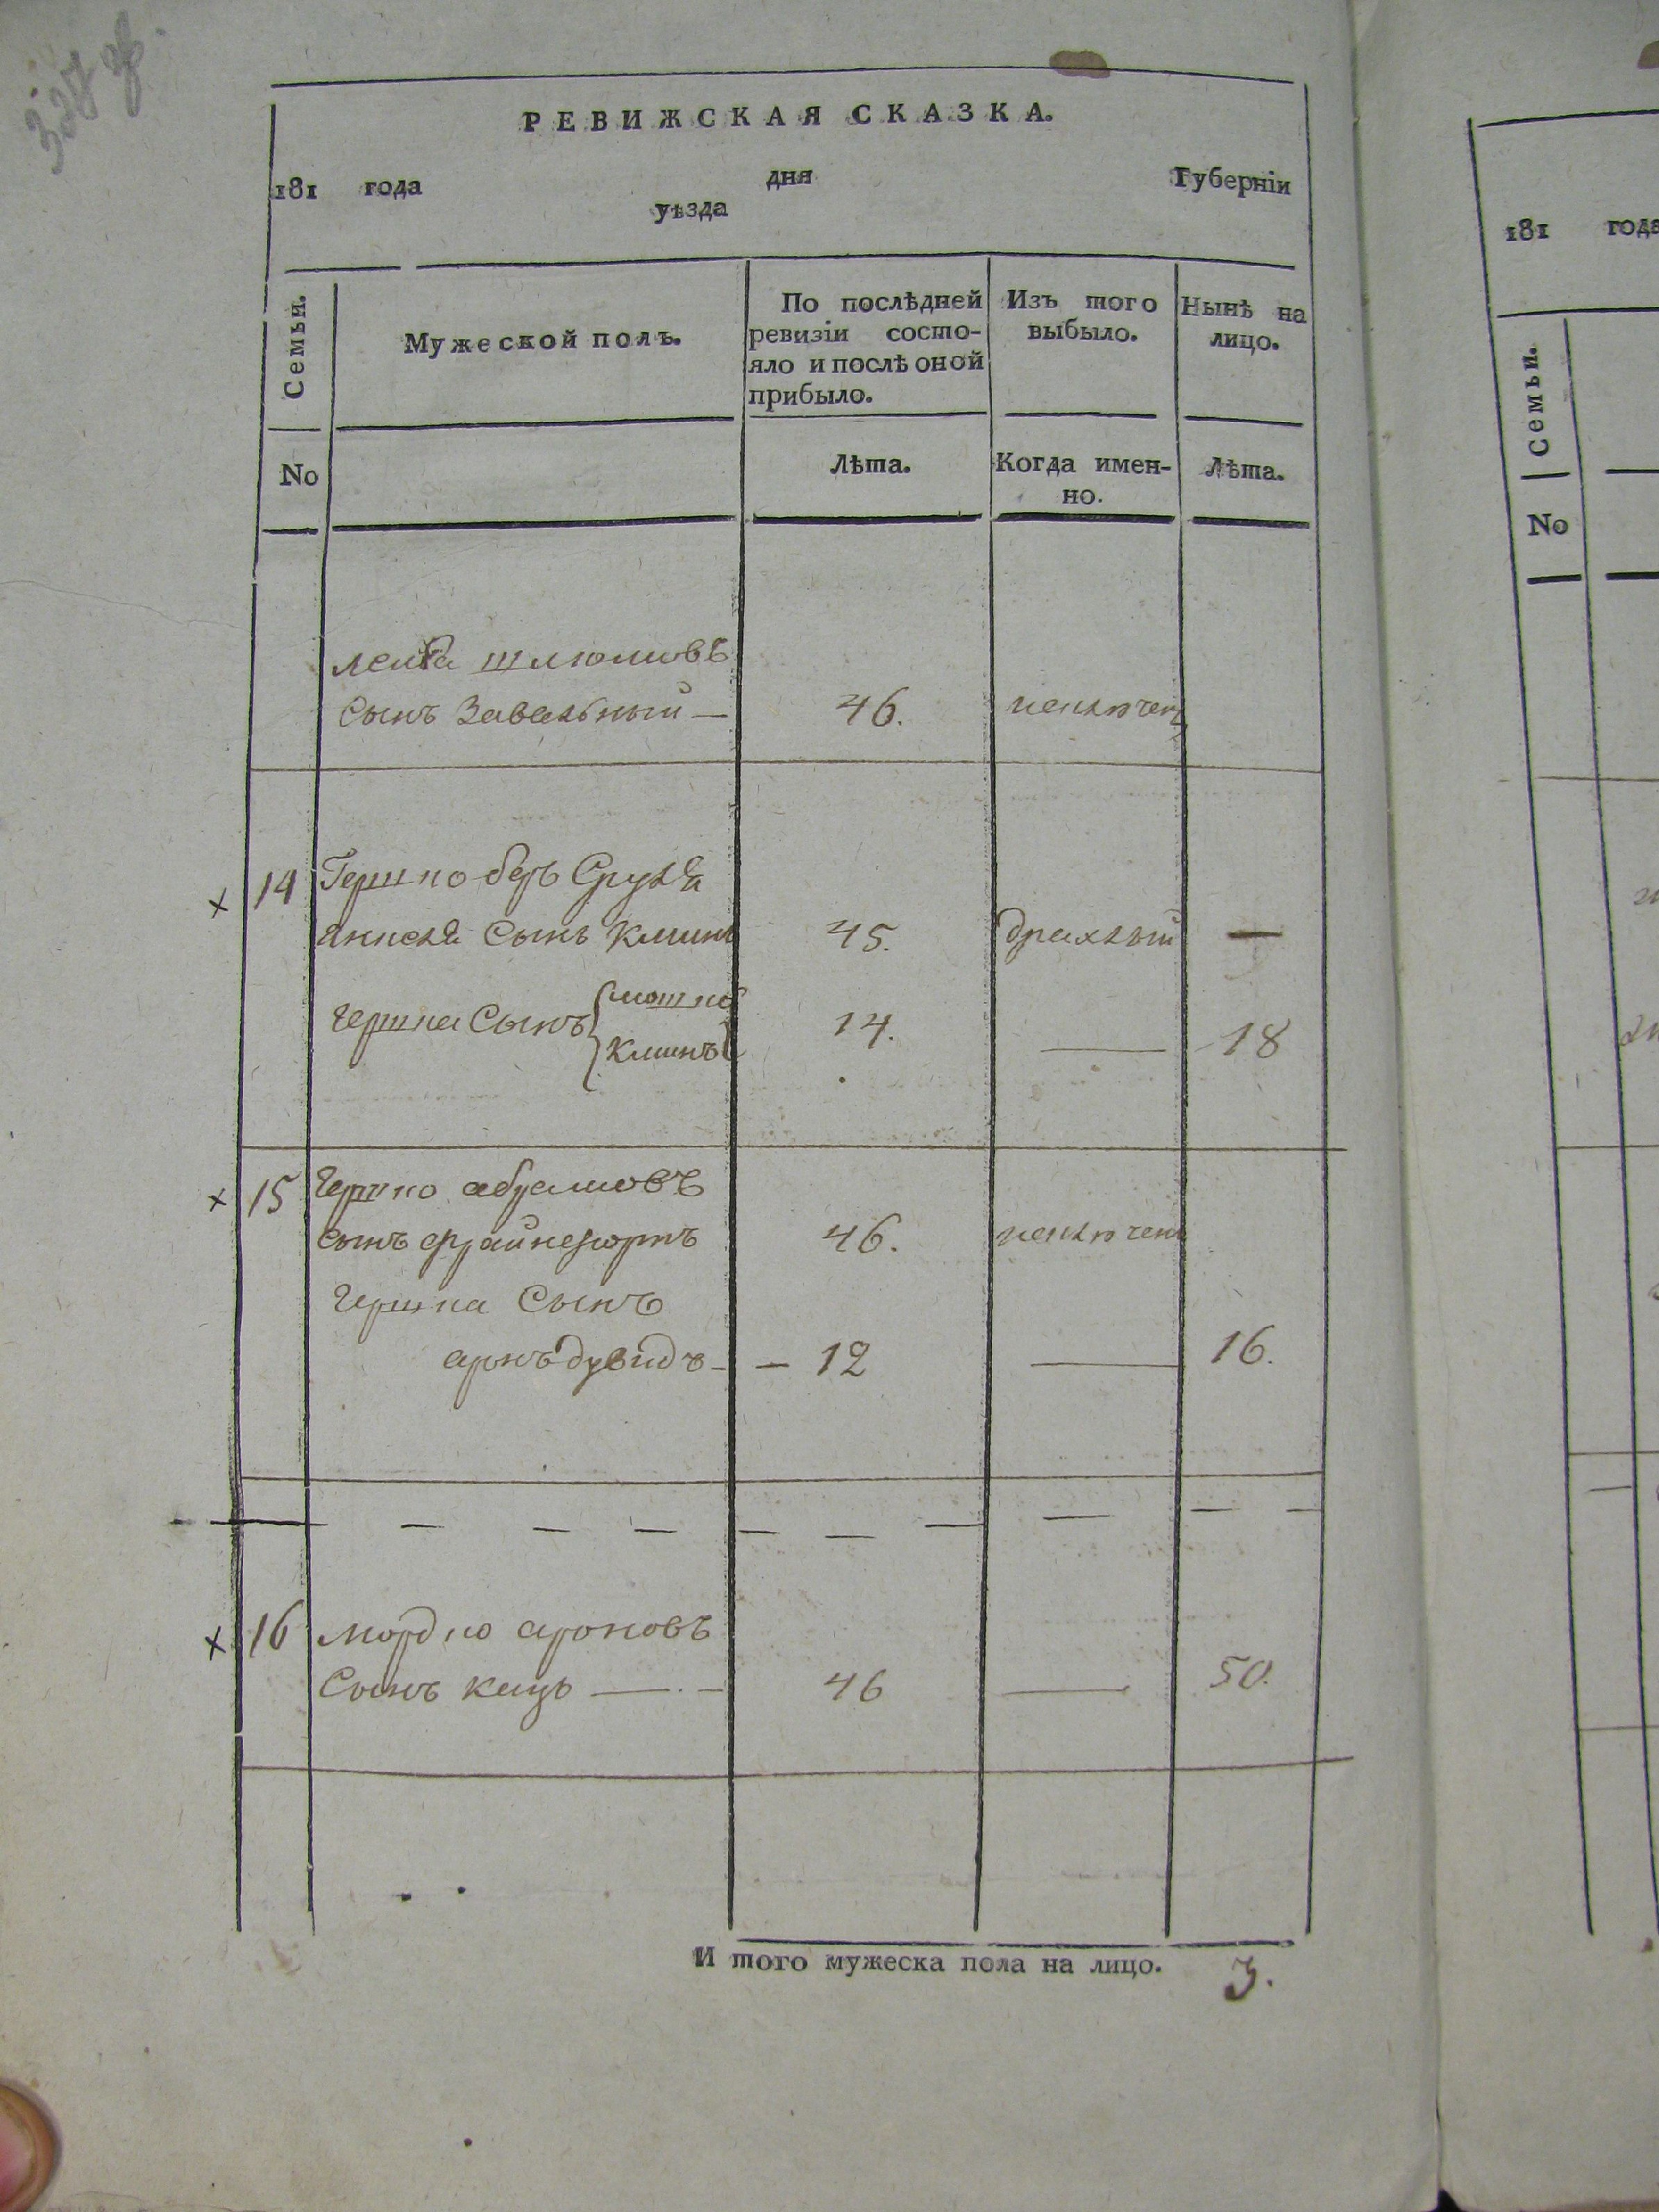 РЕВИЖСКАЯ СКАЗКА.
181 года дня Губерніи
уѣзда
Семьи.
Мужеской полъ.
По послѣдней ревизіи состо-яло и послѣ оной прибыло.
Изъ того выбыло.
Нынѣ на лицо.
No
Лѣта.
Когда имен-но.
Лѣта.
шлюмовъ
Сынъ Завальный — 46. исключенъ
14 Гершко беръ Сруля
янкеля Сынъ Клинъ 45. дряхлый —
Гершка Сынъ мошко 14. — 18
Клинъ
15 Гершко абрамовъ
сынъ 46. исключенъ
Гершка Сынъ
аронъ дувидъ — 12 — 16.
16 мордко ароновъ
Сынъ кацъ — 46 — 50.
И того мужеска пола на лицо. 3.
181 года
Семьи.
No